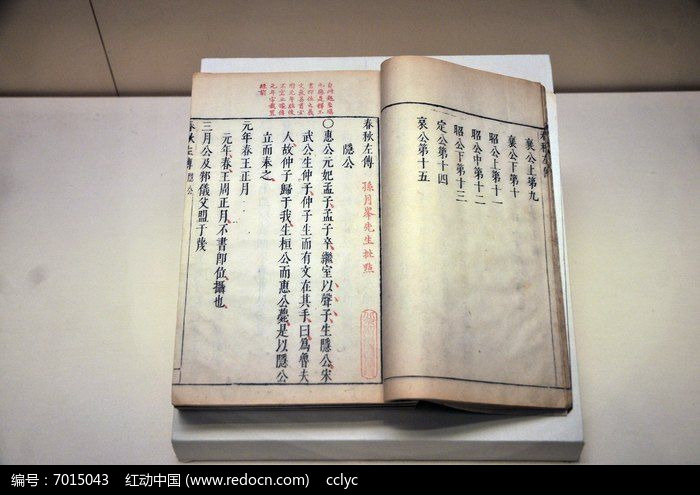 春秋左傳
襄公上第九
襄公下第十
昭公上第十一
昭公中第十二
昭公下第十三
定公第十四
哀公第十五
春秋左傳
孫月峯先生批點
隱公
〇惠公元妃孟子孟子卒繼室以聲子生隱公宋
武公生仲子仲子生而有文在其手曰為魯夫
人故仲子歸于我生桓公而惠公薨是以隱公
立而奉之
元年春王正月
元年春王周正月不書卽位攝也
三月公及邾儀父盟于蔑
春秋左傳 隱公
编号：7015043 红动中国 (www.redocn.com) cclyc